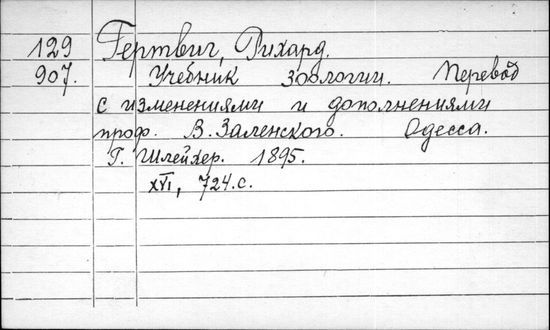 129 Гертвич, Рихард.
907. Учебник зоологии. Перевод
с изменениями и дополнениями
проф. В. Заленского. Одесса.
Г. Шлейхер. 1895.
XVI, 724.с.